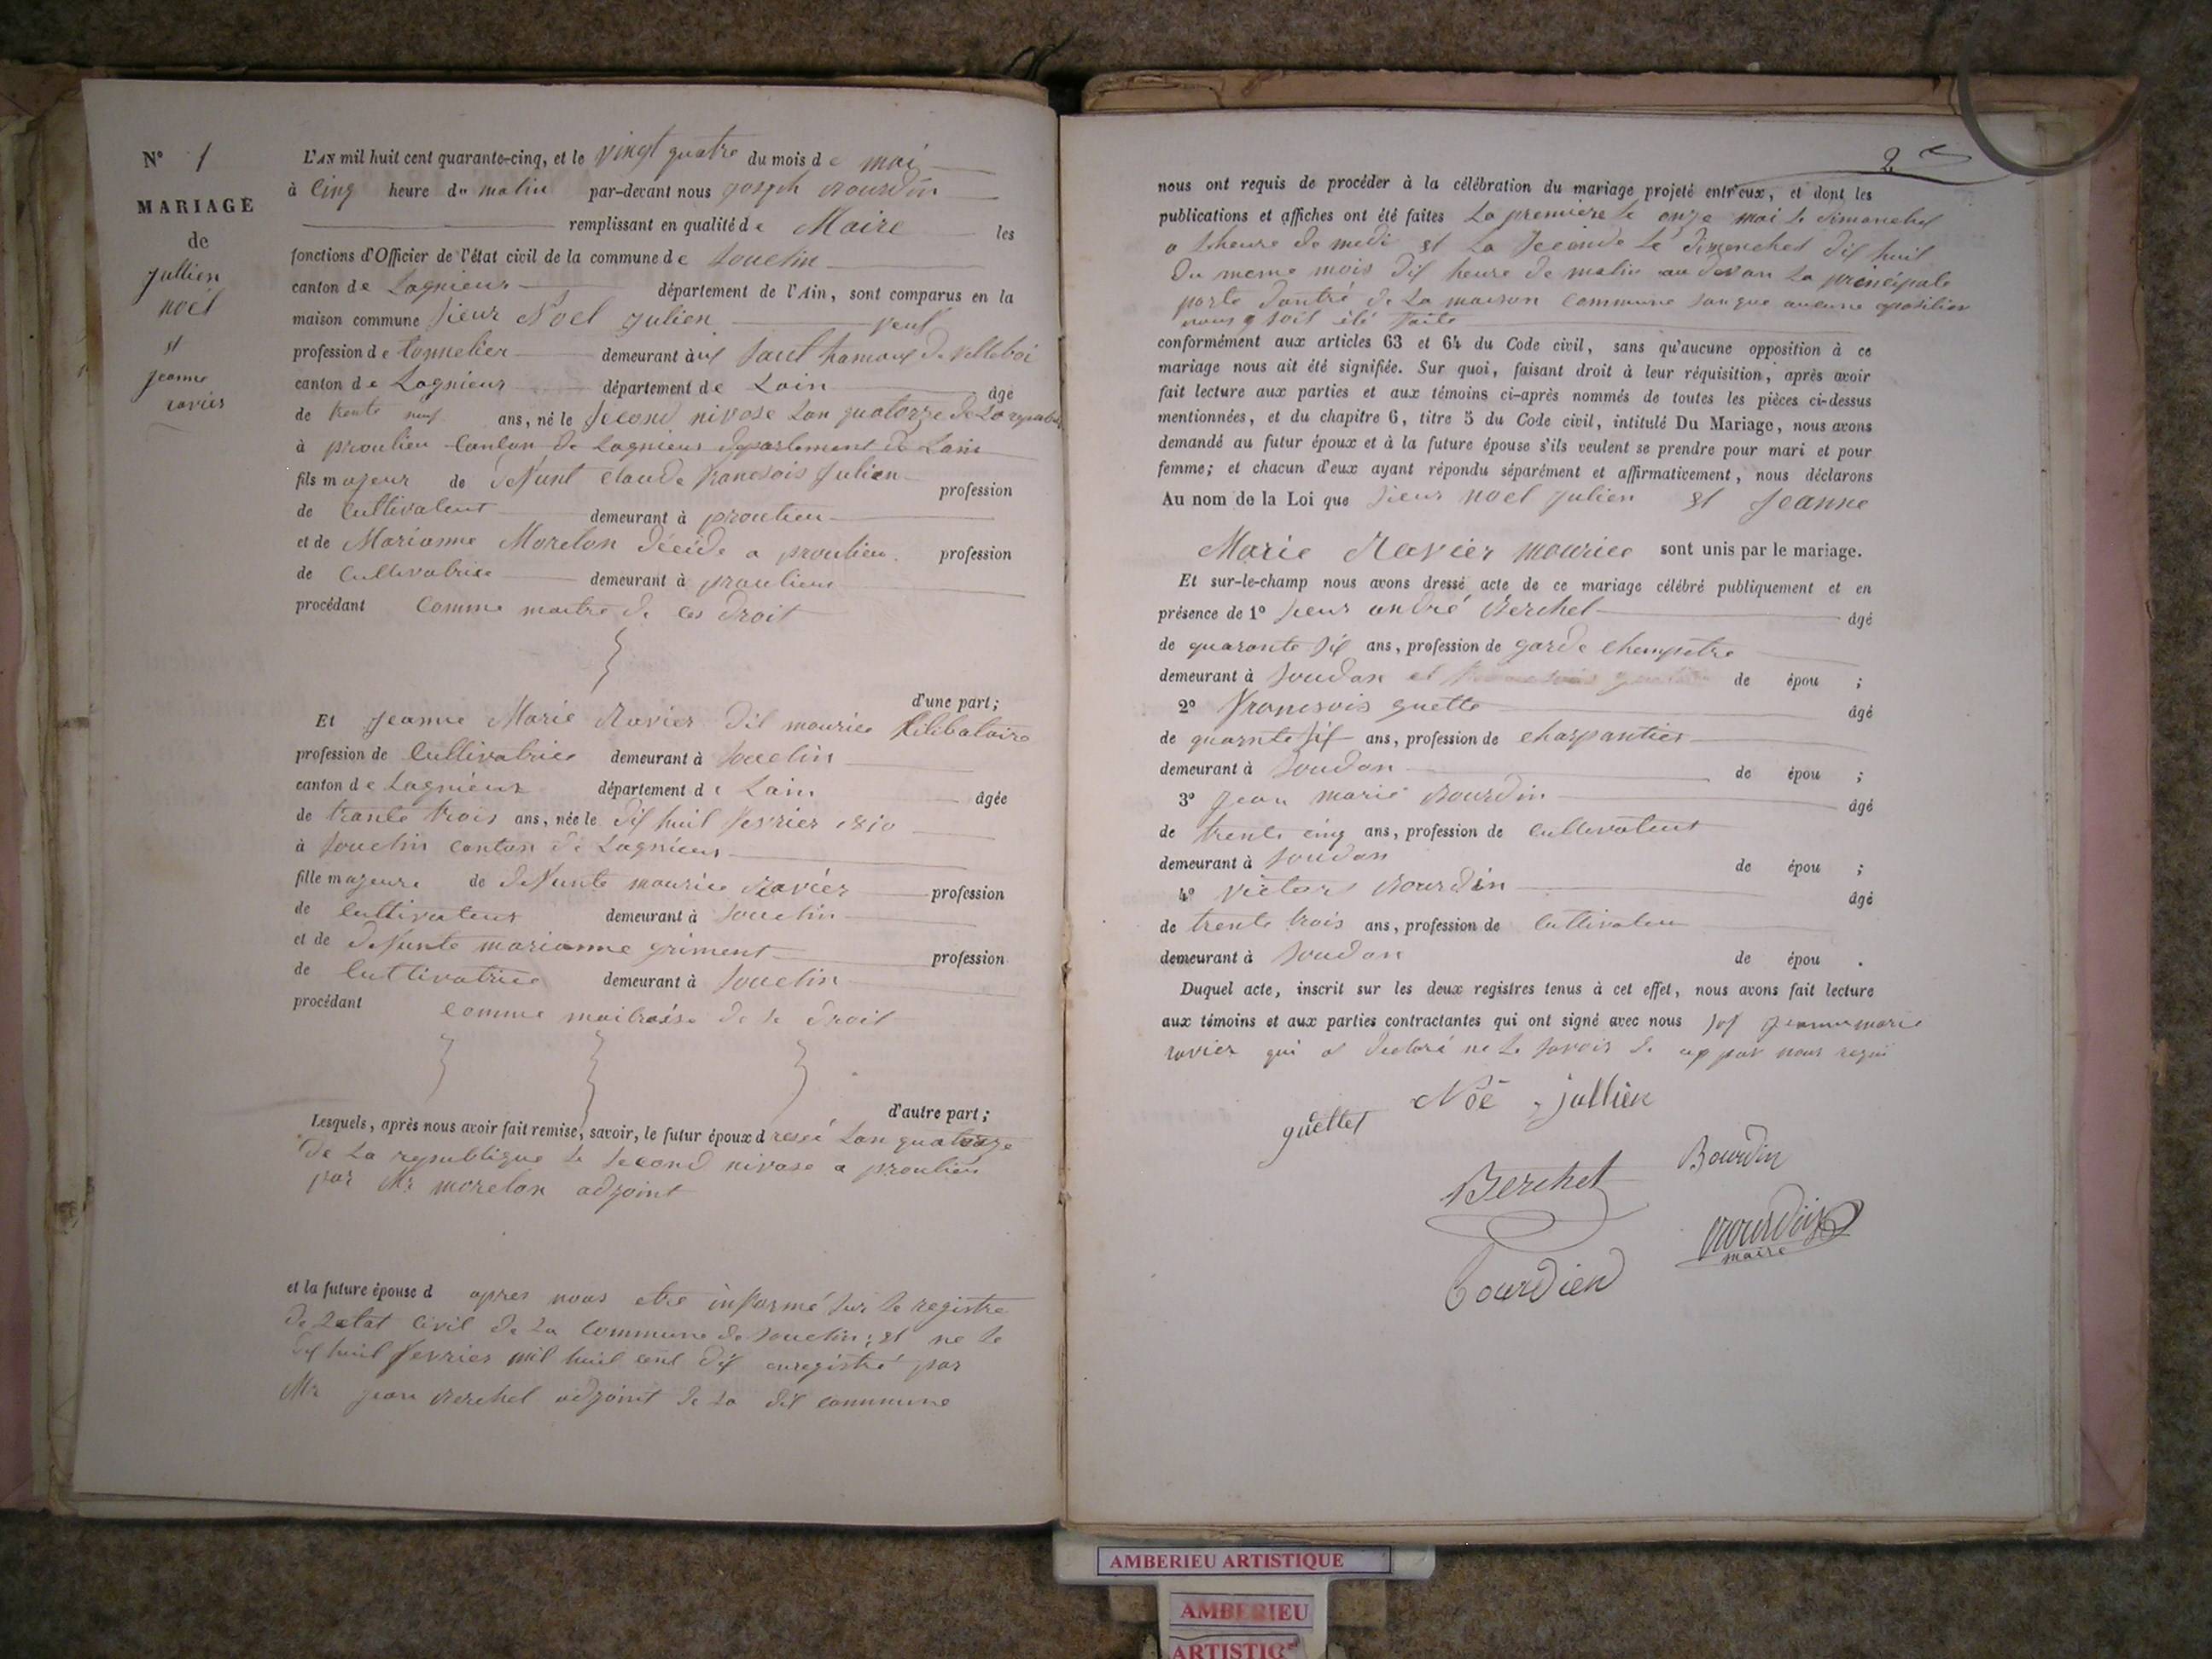 N° 1
MARIAGE
de
jullien
noél
et
jeanne
ravier
L'AN mil huit cent quarante-cinq, et le vingt quatre du mois de mai
à cinq heure du matin par-devant nous joseph Bourdin
remplissant en qualité de Maire les
fonctions d'Officier de l'état civil de la commune de Souclin
canton de Lagnieux département de l'Ain, sont comparus en la
maison commune sieur Noel Julien veuf
profession de tonnelier demeurant à
canton de Lagnieux département de Lain âgé
de trente neuf ans, né le second nivose lan quatorze de La
à proulieu canton de Lagnieux departement de Lain
fils majeur de defunt claude francsois Julien profession
de Cultivateur demeurant à proulieu
et de Marianne Morelon décéde a proulieu profession
de Cultivatrice demeurant à proulieu
procédant comme maitre de ces droit
d'une part;
Et Jeanne Marie Ravier dit maurice
profession de Cultivatrice demeurant à Souclin
canton de Lagnieux département de Lain âgée
de trante trois ans, née le dix huit fevrier 1810
à Souclin canton de Lagnieux
fille majeure de defunte maurice Ravier profession
de cultivateur demeurant à Souclin
et de defunte marianne griment profession
de Cultivatrice demeurant à Souclin
procédant comme maitraise de se droit
d'autre part;
Lesquels, après nous avoir fait remise, savoir, le futur époux d lan quatorze
de La republique le second nivose a proulieu
par Mr morelon adjoint
et la future épouse d apres nous etre informé sur le registre
de Letat civil de La Commune de Souclin; et ne le
dix huit fevrier mil huit cent dix enregistré par
Mr jean Berchet adjoint de La dit commune
2
nous ont requis de procéder à la célébration du mariage projeté entr'eux, et dont les
publications et affiches ont été faites La premiere le onze mai le dimanche
a Lheure de medi et La seconde le dimanche dix huit
du meme mois dix heure de matin au devan La principale
porte dantré de La maison commune san que aucune oposition
nous y soit été faite
conformément aux articles 63 et 64 du Code civil, sans qu'aucune opposition à ce
mariage nous ait été signifiée. Sur quoi, faisant droit à leur réquisition, après avoir
fait lecture aux parties et aux témoins ci-après nommés de toutes les pièces ci-dessus
mentionnées, et du chapitre 6, titre 5 du Code civil, intitulé Du Mariage, nous avons
demandé au futur époux et à la future épouse s'ils veulent se prendre pour mari et pour
femme; et chacun d'eux ayant répondu séparément et affirmativement, nous déclarons
Au nom de la Loi que sieur noel julien et Jeanne
Marie Ravier mourice sont unis par le mariage.
Et sur-le-champ nous avons dressé acte de ce mariage célébré publiquement et en
présence de 1° sieur andré Berchet âgé
de quarante six ans, profession de garde champetre
demeurant à Soudon et de épou ;
2° francsois guette âgé
de quarnte six ans, profession de charpantier
demeurant à Soudon de épou ;
3° jean marie Bourdin âgé
de trente cinq ans, profession de cultivateur
demeurant à Soudon de épou ;
4° victor Bourdin âgé
de trente trois ans, profession de cultivateur
demeurant à Soudon de épou .
Duquel acte, inscrit sur les deux registres tenus à cet effet, nous avons fait lecture
aux témoins et aux parties contractantes qui ont signé avec nous jeanne marie
ravier qui a declaré ne le savoir de par nous
Noé jullien
guettet
Bourdin
Berchet
Bourdin
maire
bourdien
AMBERIEU ARTISTIQUE
AMBERIEU